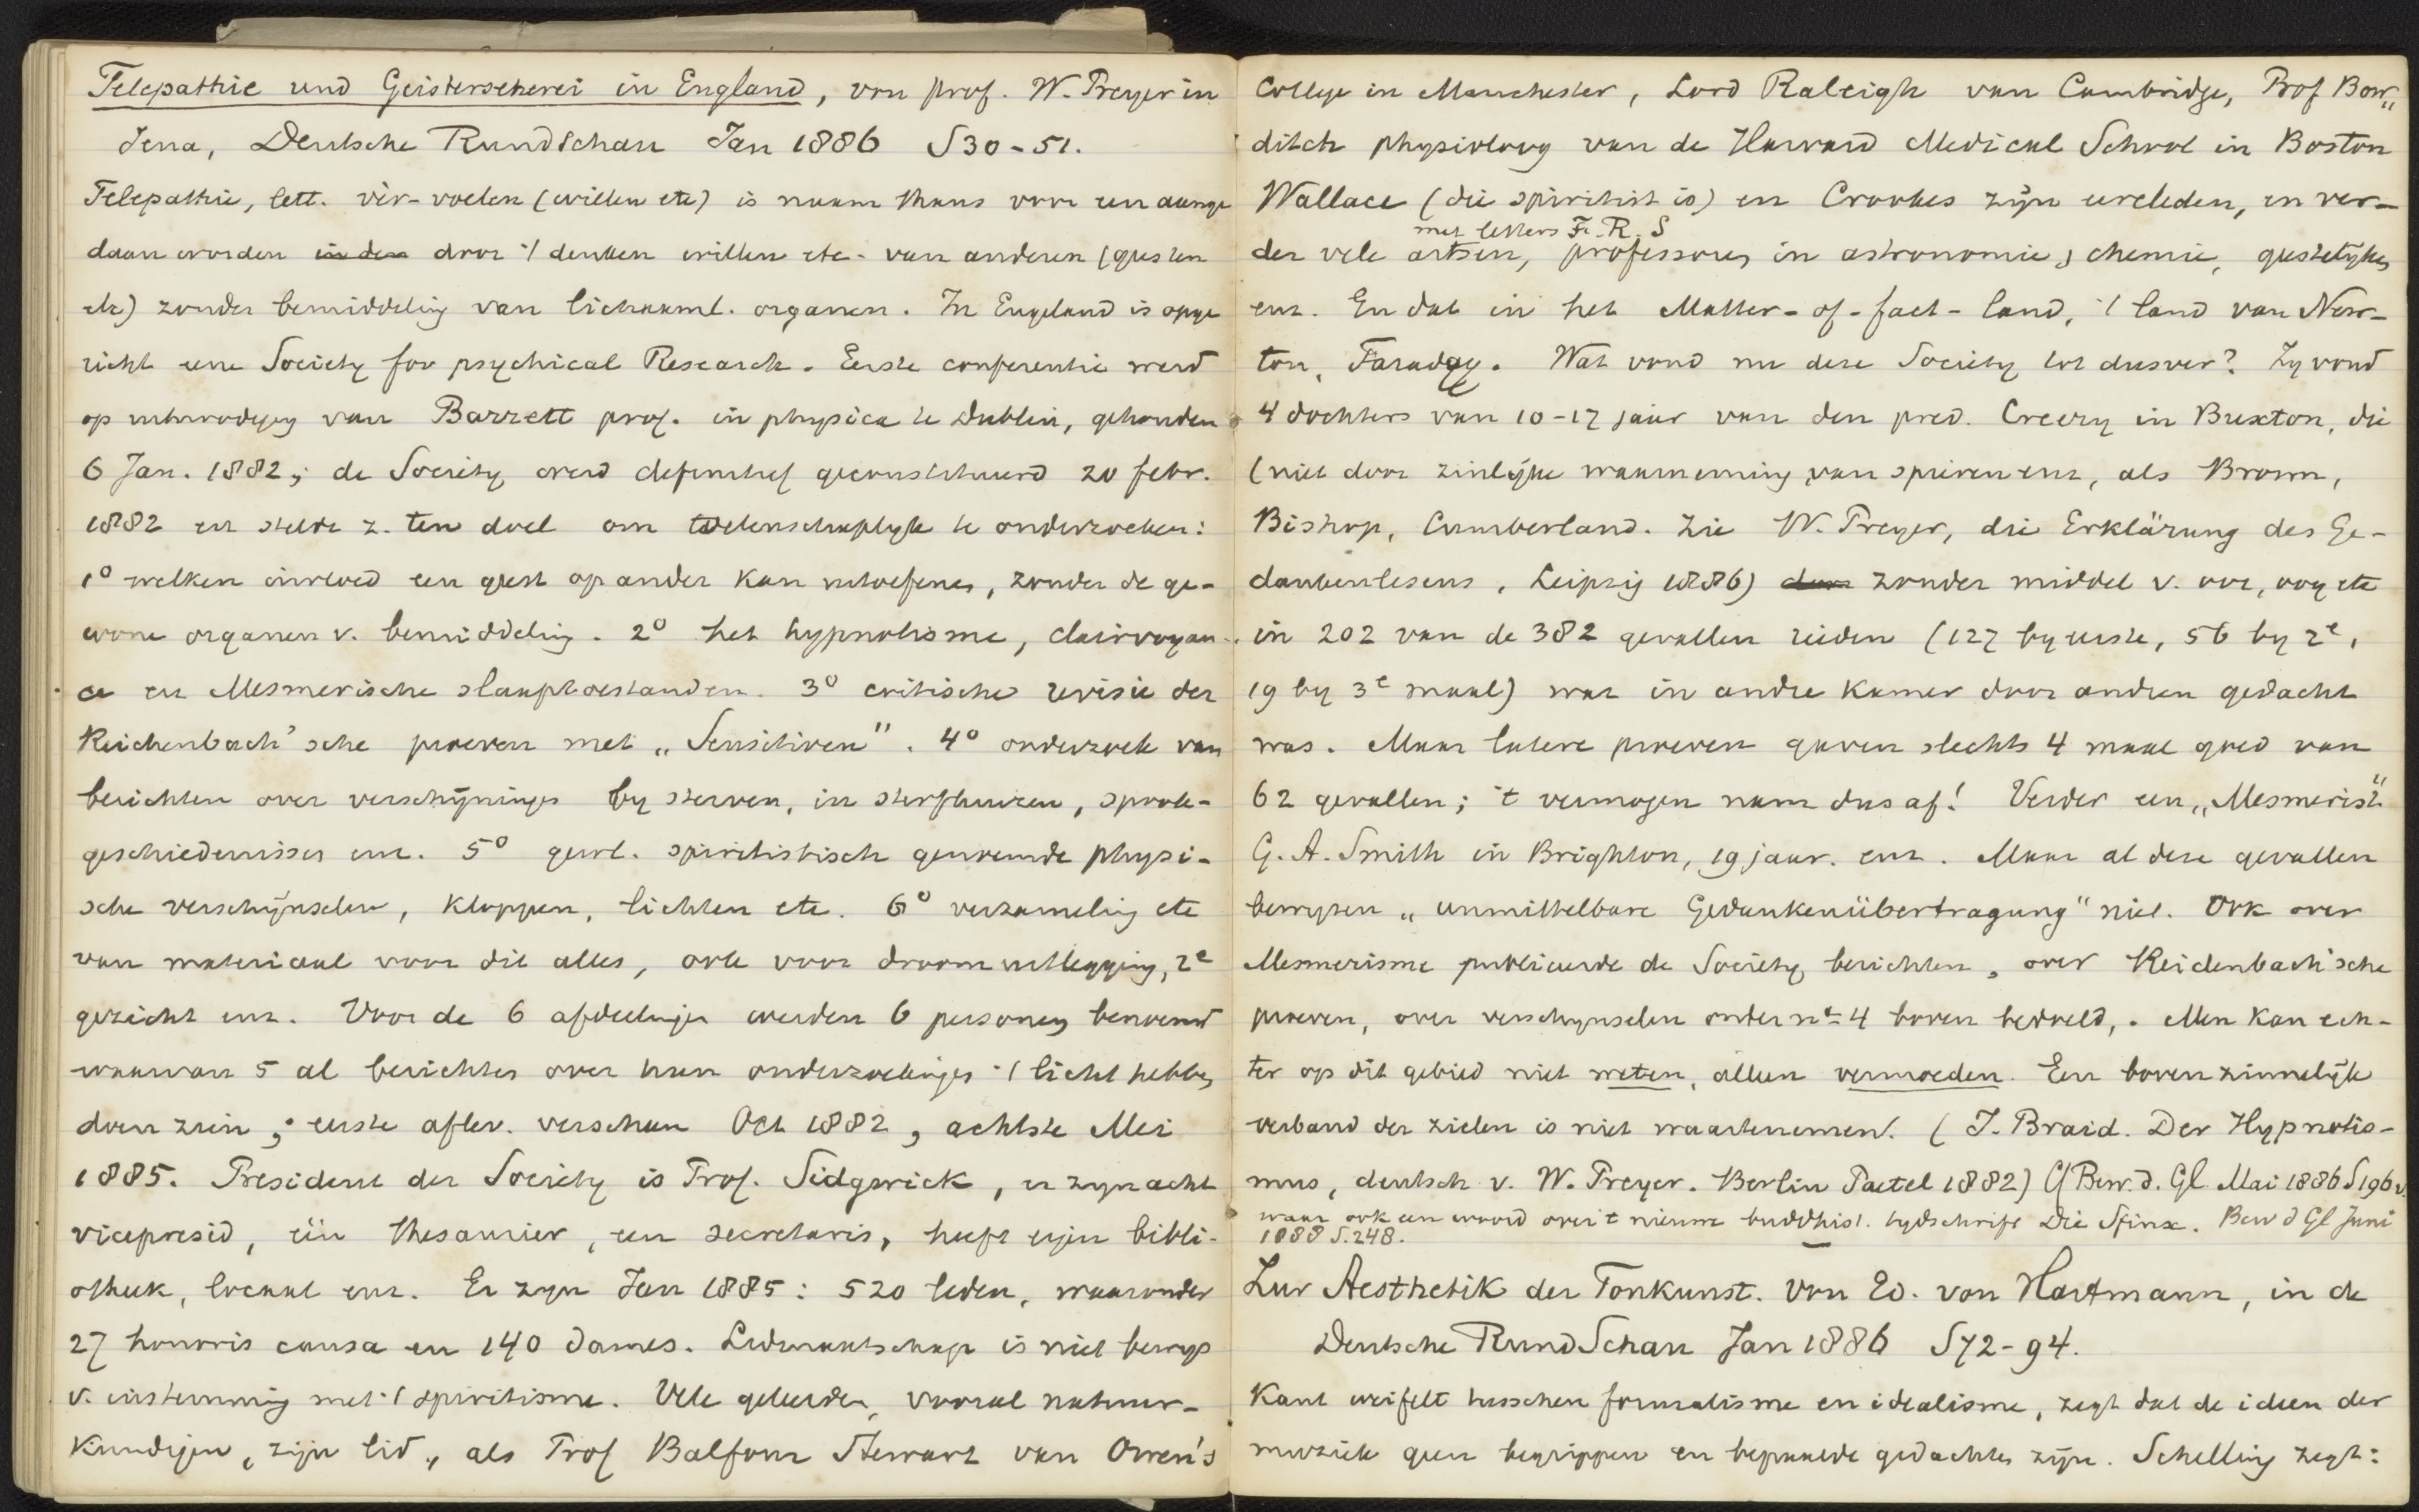 Telepathie und Geisterseherei in England, von prof. W. Preyer in
Jena, Deutsche Rundschau Jan 1886 S30-51.
Telepathie, lett. vèr-voelen (willen etc) is naam thans voor een aange
daan worden in den door 't denken willen etc. van anderen (geesten
etc) zonder bemiddeling van lichaaml. organen. In Engeland is opge
richt eene Society for psychical Research. Eerste conferentie werd
op uitnoodiging van Barrett prof. in physica te Dublin, gehouden
6 Jan. 1882; de Society werd definitief geconstitueerd 20 febr.
1882 en stelde z. ten doel om wetenschaplyk te onderzoeken:
1° welken invloed een geest op ander kan uitoefenen, zonder de ge-
wone organen v. bemiddeling. 2° het hypnotisme, clairvoyan-
ce en Mesmerische slaaptoestanden. 3° critische revisie der
Reichenbach'sche proeven met „Sensitiven". 4° onderzoek van
berichten over verschijningen by sterven, in sterfhuizen, spook-
geschiedenissen enz. 5° gewl. spiritistisch genoemde physi-
sche verschijnselen, kloppen, lichten etc. 6° verzameling etc
van materiaal voor dit alles, ook voor droomuitlegging, 2e
gezicht enz. Voor de 6 afdeelingen werden 6 personen benoemd
waarvan 5 al berichten over hun onderzoekingen 't licht hebben
doen zien; eerste aflev. verscheen Oct 1882, achtste Mei
1885. President der Society is Prof. Sidgwick, er zyn acht
vicepresid, één thesaurier, een secretaris, heeft eigen bibli-
otheek, locaal enz. Er zyn Jan 1885: 520 leden, waaronder
27 honoris causa en 140 dames. Lidmaatschap is niet bewys
v. instemming met 't spiritisme. Vele geleerden, vooral natuur-
kundigen, zijn lid, als Prof Balfour Stewart van Owen's
College in Manchester, Lord Raleigh van Cambridge, Prof Bow„
ditch physioloog van de Harvard Medical School in Boston
Wallace (die spiritist is) en Crookes zijn eereleden, en ver-
met letters F. R. S
der vele artsen, professoren in astronomie, chemie, geestelijken
enz. En dat in het Matter-of-fact-land, 't land van New-
ton, Faraday. Wat vond nu deze Society tot dusver? Zy vond
4 dochters van 10-17 jaar van den pred. Creery in Buxton, die
(niet door zinlijke waarneming van spieren enz, als Brown,
Bishop, Cumberland. Zie W. Preyer, die Erklärung des Ge-
dankenlesens, Leipzig 1886) door zonder middel v. oor, oog etc
in 202 van de 382 gevallen rieden (127 by eerste, 56 by 2e,
19 by 3e maal) wat in andre kamer door andren gedacht
was. Maar latere proeven gaven slechts 4 maal goed van
62 gevallen; 't vermogen nam dus af! Verder een „Mesmerist"
G. A. Smith in Brighton, 19 jaar. enz. Maar al deze gevallen
bewyzen „unmittelbare Gedankenübertragung" niet. Ook over
Mesmerisme publiceerde de Society berichten, over Reichenbach'sche
proeven, over verschynselen onder no 4 boven bedoeld,. Men kan ech-
ter op dit gebied niet weten, alleen vermoeden. Een bovenzinnelijk
verband der zielen is niet waartenemen. (J. Braid. Der Hypnotis-
mus, deutsch v. W. Preyer. Berlin Paetel 1882) Cf Bew. d. Gl. Mai 1886 S196 v.
waar ook een woord over 't nieuwe buddhist. tydschrift Die Sfinx. Bew d Gl Juni
1888 S.248.
Zur Aesthetik der Tonkunst. Von Ed. von Hartmann, in de
Deutsche RundSchau Jan 1886 S72-94.
Kant weifelt tusschen formalisme en idealisme, zegt dat de ideen der
muziek geen begrippen en bepaalde gedachten zijn. Schelling zegt: